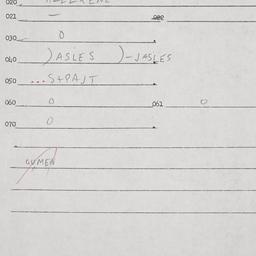 020
021 — 022
030 0
040 )ASLES )-JASLES
050 ...S+PAJT
060 0 061 0
070 0
GUMEA